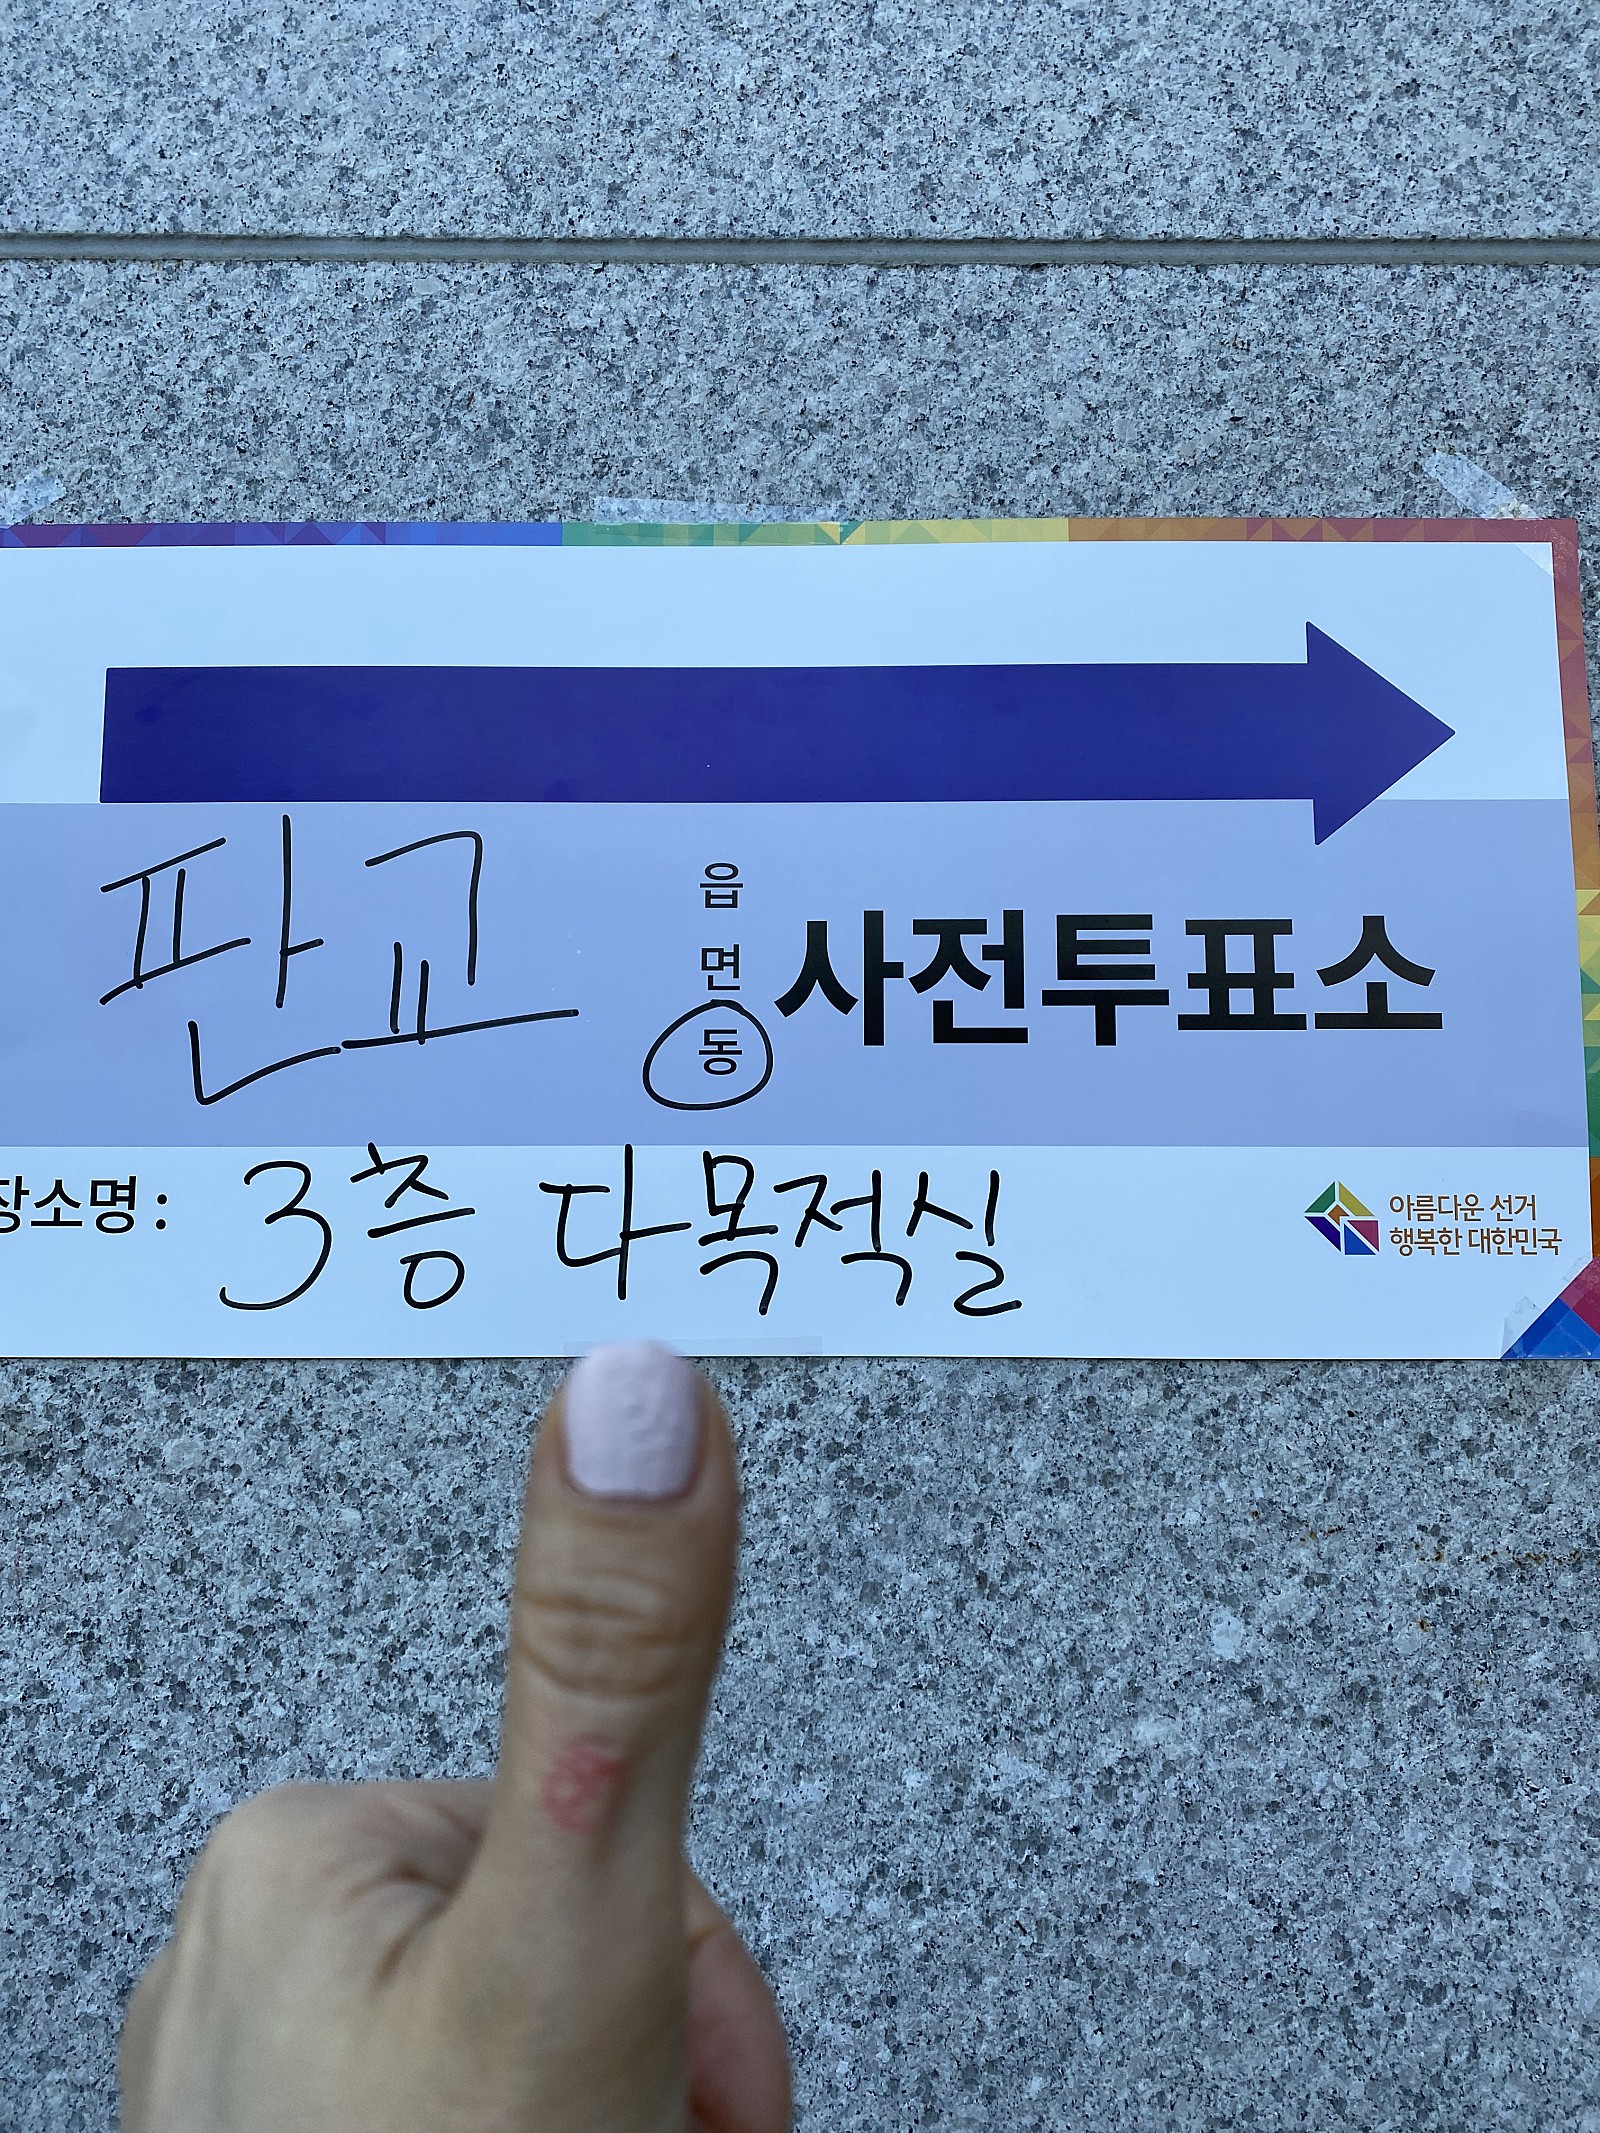 판교 읍 면 동 사전투표소
장소명 : 3층 다목적실
아름다운 선거
행복한 대한민국